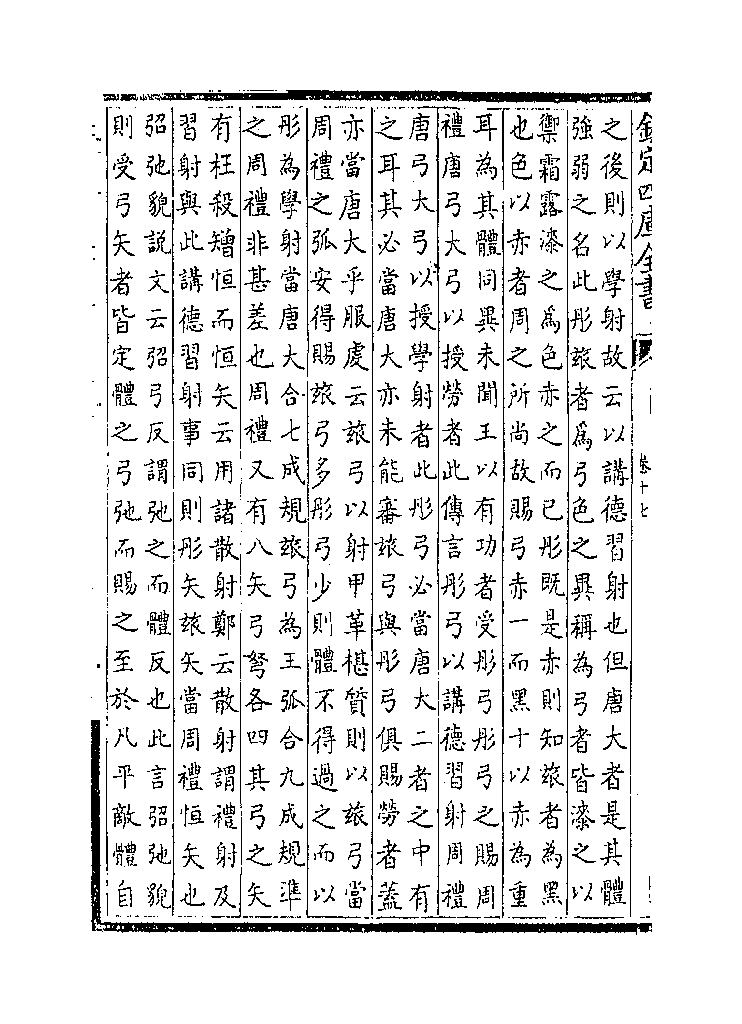 欽定四庫全書
卷十七
之後則以學射故云以講德習射也但唐大者是其體
強弱之名此彤玈者爲弓色之異稱為弓者皆漆之以
禦霜露漆之為色赤之而已彤既是赤則知玈者為黑
也色以赤者周之所尚故賜弓赤一而黑十以赤為重
耳為其體同異未聞王以有功者受彤弓彤弓之賜周
禮唐弓大弓以授勞者此傳言彤弓以講德習射周禮
唐弓大弓以授學射者此彤弓必當唐大二者之中有
之耳其必當唐大亦未能審玈弓與彤弓俱賜勞者蓋
亦當唐大乎服虔云玈弓以射甲革椹質則以玈弓當
周禮之弧安得賜玈弓多彤弓少則體不得過之而以
彤為學射當唐大合七成規玈弓為王弧合九成規準
之周禮非甚差也周禮又有八矢弓弩各四其弓之矢
有枉殺矰恒而恒矢云用諸散射鄭云散射謂禮射及
習射與此講德習射事同則彤矢玈矢當周禮恒矢也
弨弛貌説文云弨弓反謂弛之而體反也此言弨弛貌
則受弓矢者皆定體之弓弛而賜之至於凡平敵體自